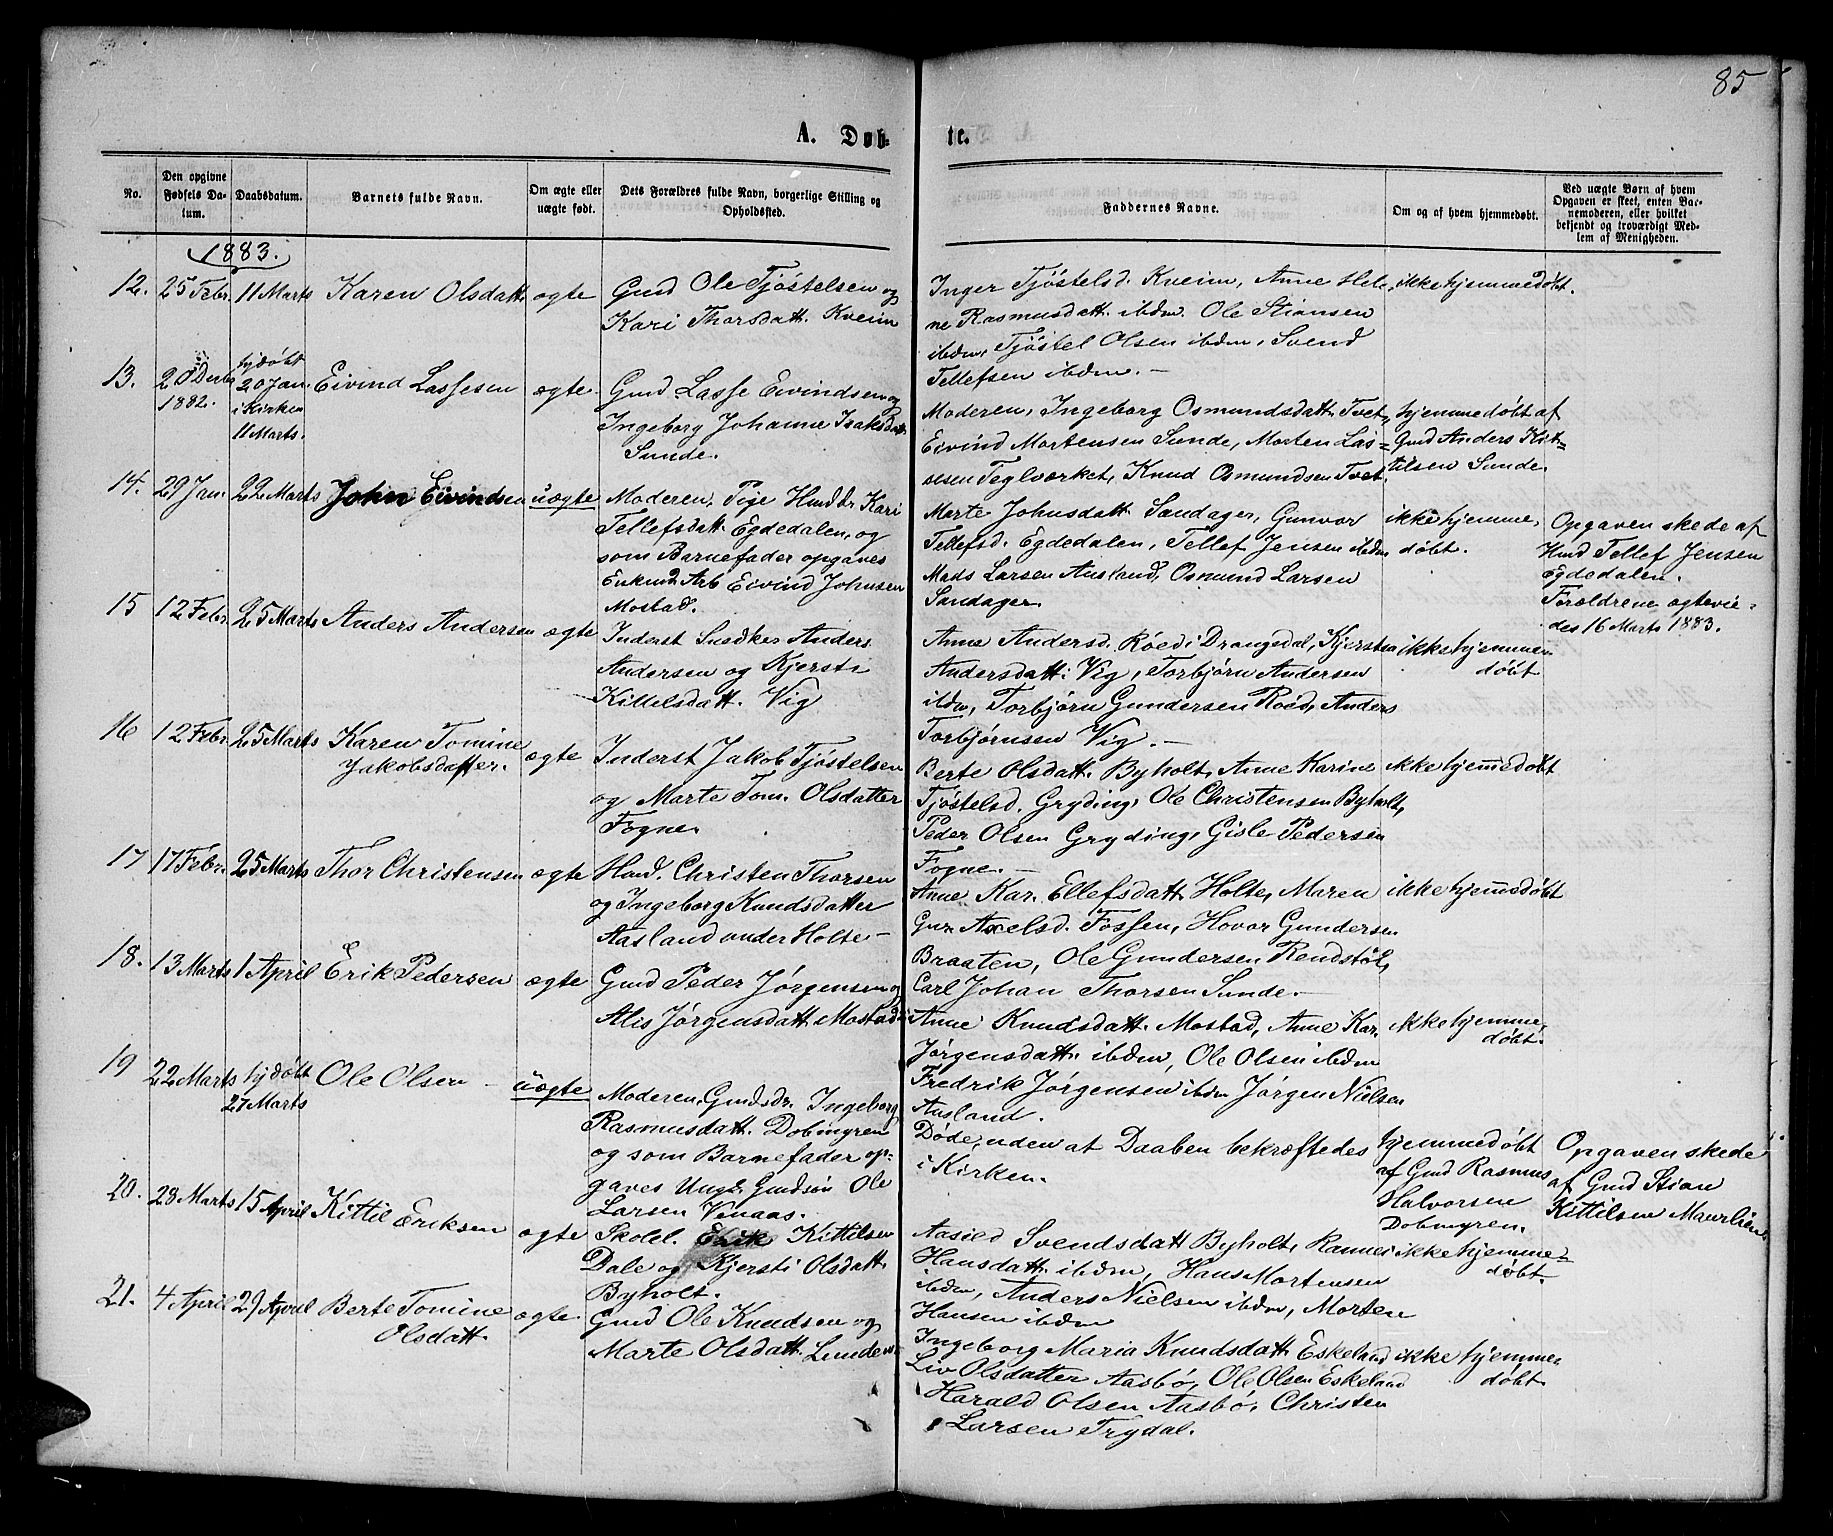 85
A. Døb-
te.
No.
Den opgivne Fødsels Datum.
Daabsdatum.
Barnets fulde Navn.
Om ægte eller uægte født.
Dets Forældres fulde Navn, borgerlige Stilling og Opholdssted.
Faddernes Navne.
Om og af hvem hjemmedøbt.
Ved uægte Børn af hvem Opgaven er skeet, enten Barnemoderen, eller hvilket bekjendt og troværdigt Medlem af Menigheden.
1883.
12.
25 Febr.
11 Marts
Karen Olsdatt.
ægte
Gmd Ole Tjøstelsen og
Kari Thorsdatt. Kveim
Inger Tjøstelsd. Kveim, Anne Hele-
ne Rasmusdatt. ibdm. Ole Stiansen
ibdm, Tjøstel Olsen ibdm, Svend
Tellefsen ibdm. —
ikke hjemmedøbt.
13.
20 Decbr
1882.
hjdøbt
20 Jan.
i Kirken
11 Marts.
Eivind Lassesen
ægte
Gmd Lasse Eivindsen og
Ingeborg Johanne Isaksdatt.
Sunde.
Moderen, Ingeborg Osmundsdatt. Tvet,
Eivind Mortensen Sunde, Morten Las=
sesen Teglværket, Knud Osmundsen Tvet.
hjemmedøbt af
Gmd Anders Kit=
tilsen Sunde.
14.
29 Jan.
22 Marts
John Eivindsen
uægte
Moderen, Pige Husmdr. Kari
Tellefsdatt. Egdedalen, og
som Barnefader opgaves
Enkmd. Arb. Eivind Johnsen
Mostad.
Marte Johnsdatt. Sandager, Gunvor
Tellefsd. Egdedalen, Tellef Jensen ibdm
Mads Larsen Ausland, Osmund Larsen
Sandager.
ikke hjemme,
døbt.
Opgaven skede af
Hmd Tellef Jensen
Egdedalen.
Forældrene ægtevie=
des 16 Marts 1883.
15
12 Febr.
25 Marts
Anders Andersen
ægte
Inderst Snedker Anders
Andersen og Kjersti
Kittelsdatt. Vig
Anne Andersd. Röed i Drangedal, Kjersten
Andersdatt. Vig, Torbjørn Andersen
ibdm, Torbjørn Gundersen Röed, Anders
Torbjørnsen Vig. —
ikke hjemme
døbt
16
12 Febr.
25 Marts
Karen Tomine
Jakobsdatter.
ægte
Inderst Jakob Tjøstelsen
og Marte Tom. Olsdatter
Fogne.
Berte Olsdatt. Byholt, Anne Karine
Tjøstelsd. Gryding, Ole Christensen Byholt,
Peder Olsen Gryding, Gisle Pedersen
Fogne. —
ikke hjem̅edøbt
17
17 Febr.
25 Marts
Thor Christensen
ægte
Hmd. Christen Thorsen
og Ingeborg Knudsdatter
Aasland under Holte —
Anne Kar. Ellefsdatt. Holte, Maren
Gur. Axelsd. Fossen, Hovor Gundersen
Braaten, Ole Gundersen Rendstöl,
Carl Johan Thorsen Sunde. —
ikke hjem̅edøbt
18.
13 Marts
1 April
Erik Pedersen
ægte
Gmd Peder Jørgensen og
Alis Jørgensdatt. Mostad
Anne Knudsdatt. Mostad, Anne Kar.
Jørgensdatt. ibdm, Ole Olsen ibdm
Fredrik Jørgensen ibdm Jørgen Nielsen
Ausland.
ikke hjemme,
døbt.
19
22 Marts
hjdøbt
27 Marts
Ole Olsen —
uægte
Moderen, Gmdsdr. Ingeborg
Rasmusdatt. Dobmyren
og som Barnefader op=
gaves Ungk. Gmdsøn Ole
Larsen Venaas.
Døde, uden at Daaben bekræftedes
i Kirken.
hjemmedøbt
af Gmd Rasmus
Halvorsen
Dobmyren.
Opgaven skede
af Gmd Stian
Kittilsen Maurliene
20.
28 Marts
15 April
Kittil Eriksen
ægte
Skolel. Erik Kittilsen
Dale og Kjersti Olsdatt.
Byholt.
Aasild Svendsdatt Byholt, Rannei
Hansdatt. ibdm, Hans Mortensen
ibdm, Anders Nielsen ibdm, Morten
Hansen ibdm
ikke hjemme=
døbt.
21.
4 April
29 April
Berte Tomine
Olsdatt.
ægte.
Gmd Ole Knudsen og
Marte Olsdatt. Lunden
Ingeborg Maria Knudsdatt. Eskeland
Liv Olsdatter Aasbø, Ole Olsen Eskeland
Harald Olsen Aasbø, Christen
Larsen Trydal.
ikke hjemme
døbt.